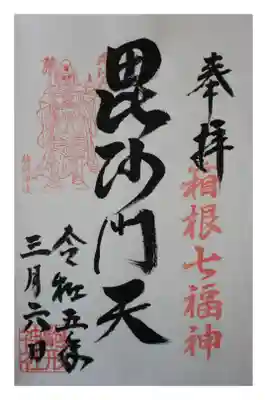 奉拝
箱根七福神
毘沙門天
令和五年
三月六日